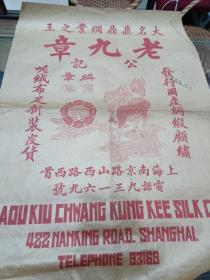 大名鼎鼎綢業之王
老九章
公記
發行國產綢緞顧繡
呢絨布疋新裝皮貨
上海南京路山西路西首
電話九三一六九號
AOU KIU CHWANG KUNG KEE SILK C
422 NANKING ROAD. SHANGHAI.
TELEPHONE 93169